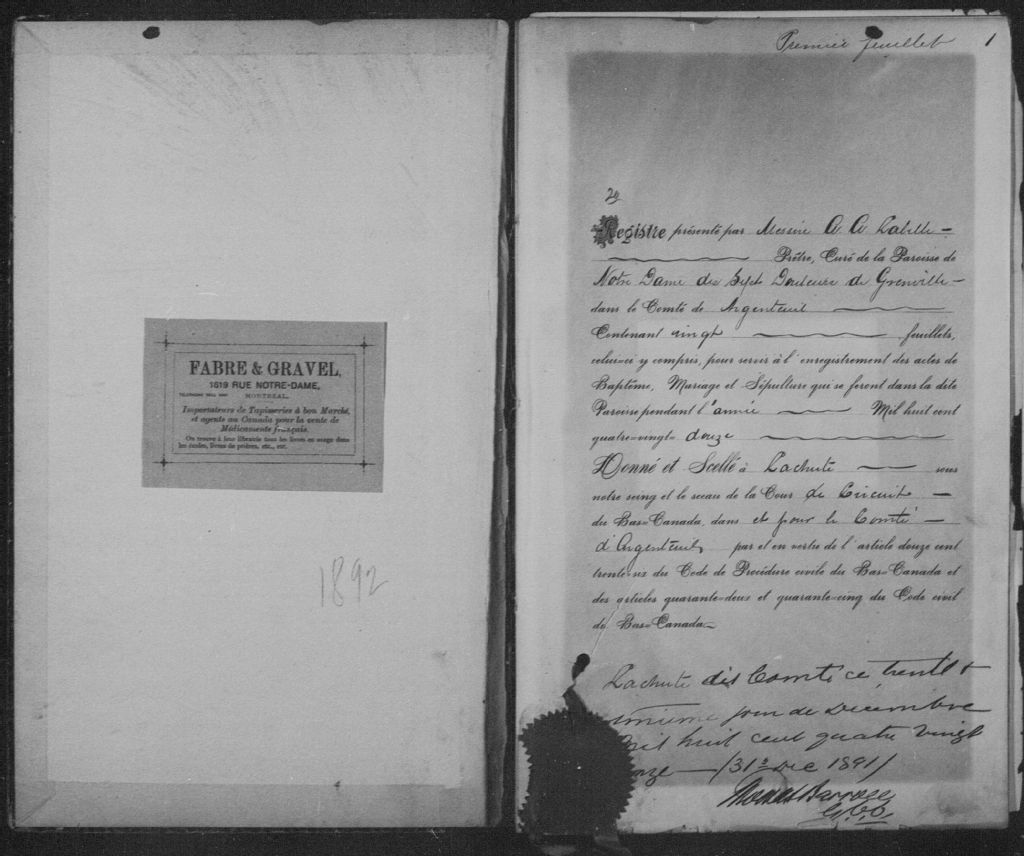 FABRE & GRAVEL,
1619 RUE NOTRE-DAME,
MONTREAL.
Importateurs de Tapisseries à bon Marché,
et agents au Canada pour la vente de
Médicaments français.
On trouve à leur librairie tous les livres en usage dans
les écoles, livres de prières, etc., etc.
1892
Premier feuillet 1
Registre présenté par Messire A. A. Labelle
Prêtre, Curé de la Paroisse de
Notre Dame des Sept Douleurs de Grenville
dans le Comté de Argenteuil
Contenant vingt feuillets,
celui-ci y compris, pour servir à l'enregistrement des actes de
Baptême, Mariage et Sépulture qui se feront dans la dite
Paroisse pendant l'année Mil huit cent
quatre-vingt-douze
Donné et Scellé à Lachute sous
notre seing et le sceau de la Cour de Circuit
du Bas-Canada, dans et pour le Comté
d'Argenteuil, par et en vertu de l'article douze cent
trente-six du Code de Procédure civile du Bas-Canada et
des articles quarante-deux et quarante-cinq du Code civil
du Bas-Canada
Lachute dit Comté ce trente &
unième jour de Decembre
mil huit cent quatre vingt
onze /31e Dec 1891/
Barron
G.C.C.